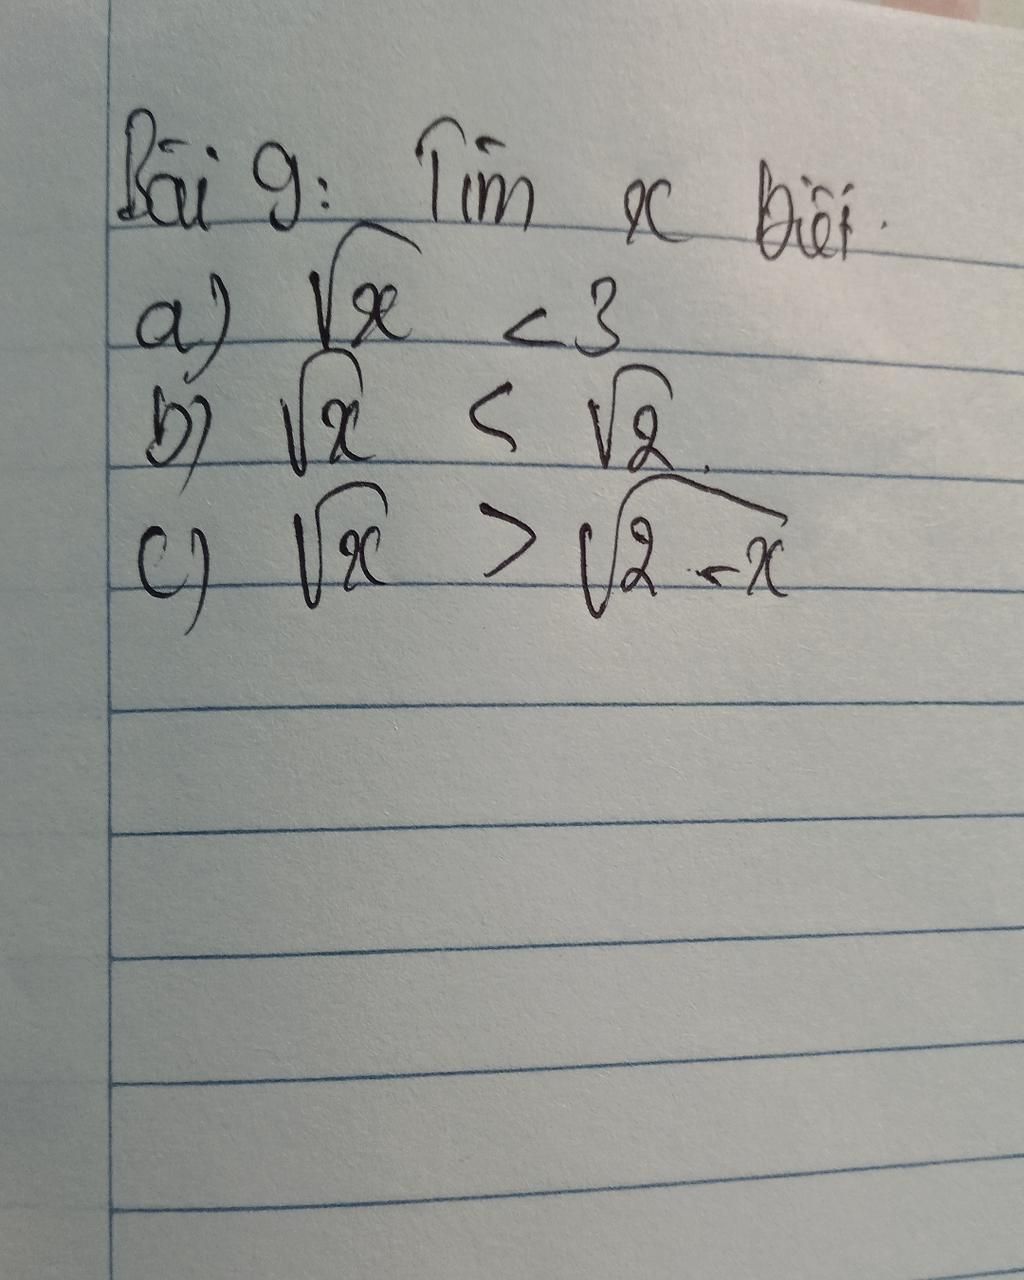 Bài 9: Tìm x biết.
a) √x < 3
b) √x < √2.
c) √x > √2-x